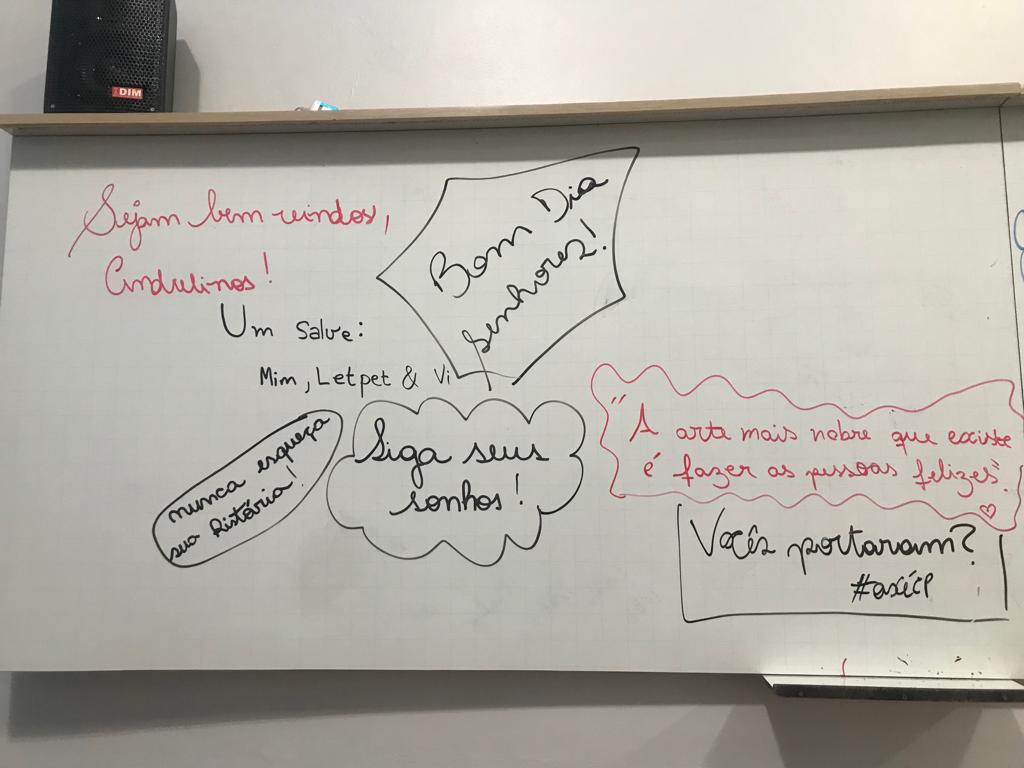 DIM
Sejam bem vindos,
Andulinos!
Bom Dia
senhorez!
Um Salve:
Mim, Letpet & Vi
nunca esqueça
sua história!
Siga seus
sonhos!
"A arte mais nobre que existe
é fazer as pessoas felizes".
Vocês portaram?
#axéCP